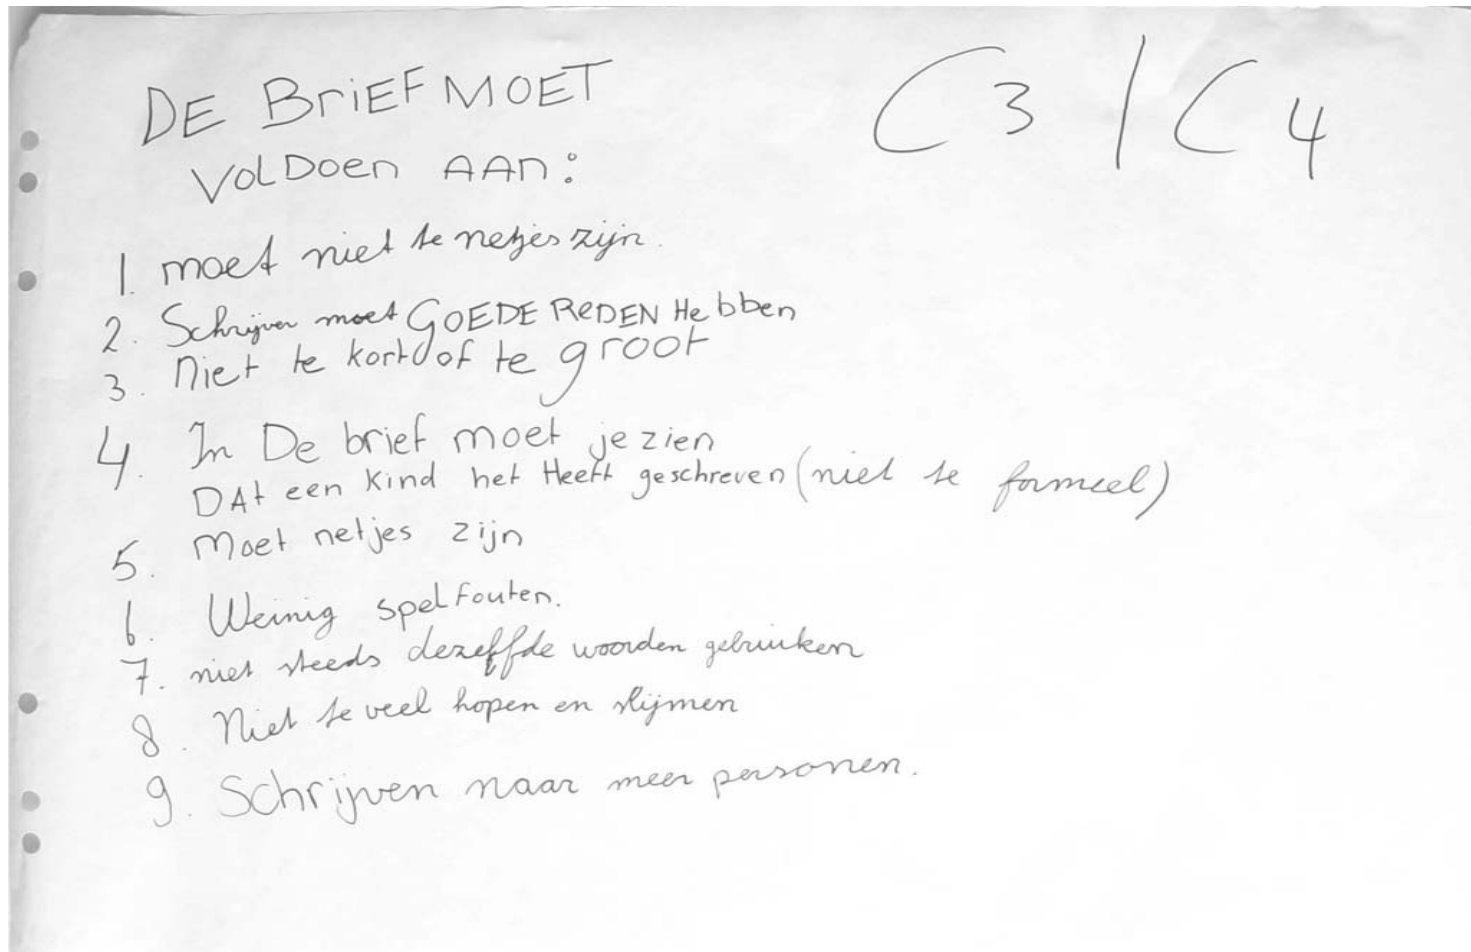 DE BriEF MOET
VolDoen AAn:
C3 / C4
1. moet niet te netjes zijn.
2. Schrijver moet GOEDE REDEN Hebben
3. niet te kort of te groot
4. In De brief moet je zien
DAt een kind het Heeft geschreven (niet te formeel)
5. Moet netjes zijn
6. Weinig spelfouten.
7. niet steeds dezelfde woorden gebruiken
8. Niet te veel hopen en slijmen
9. Schrijven naar meer personen.